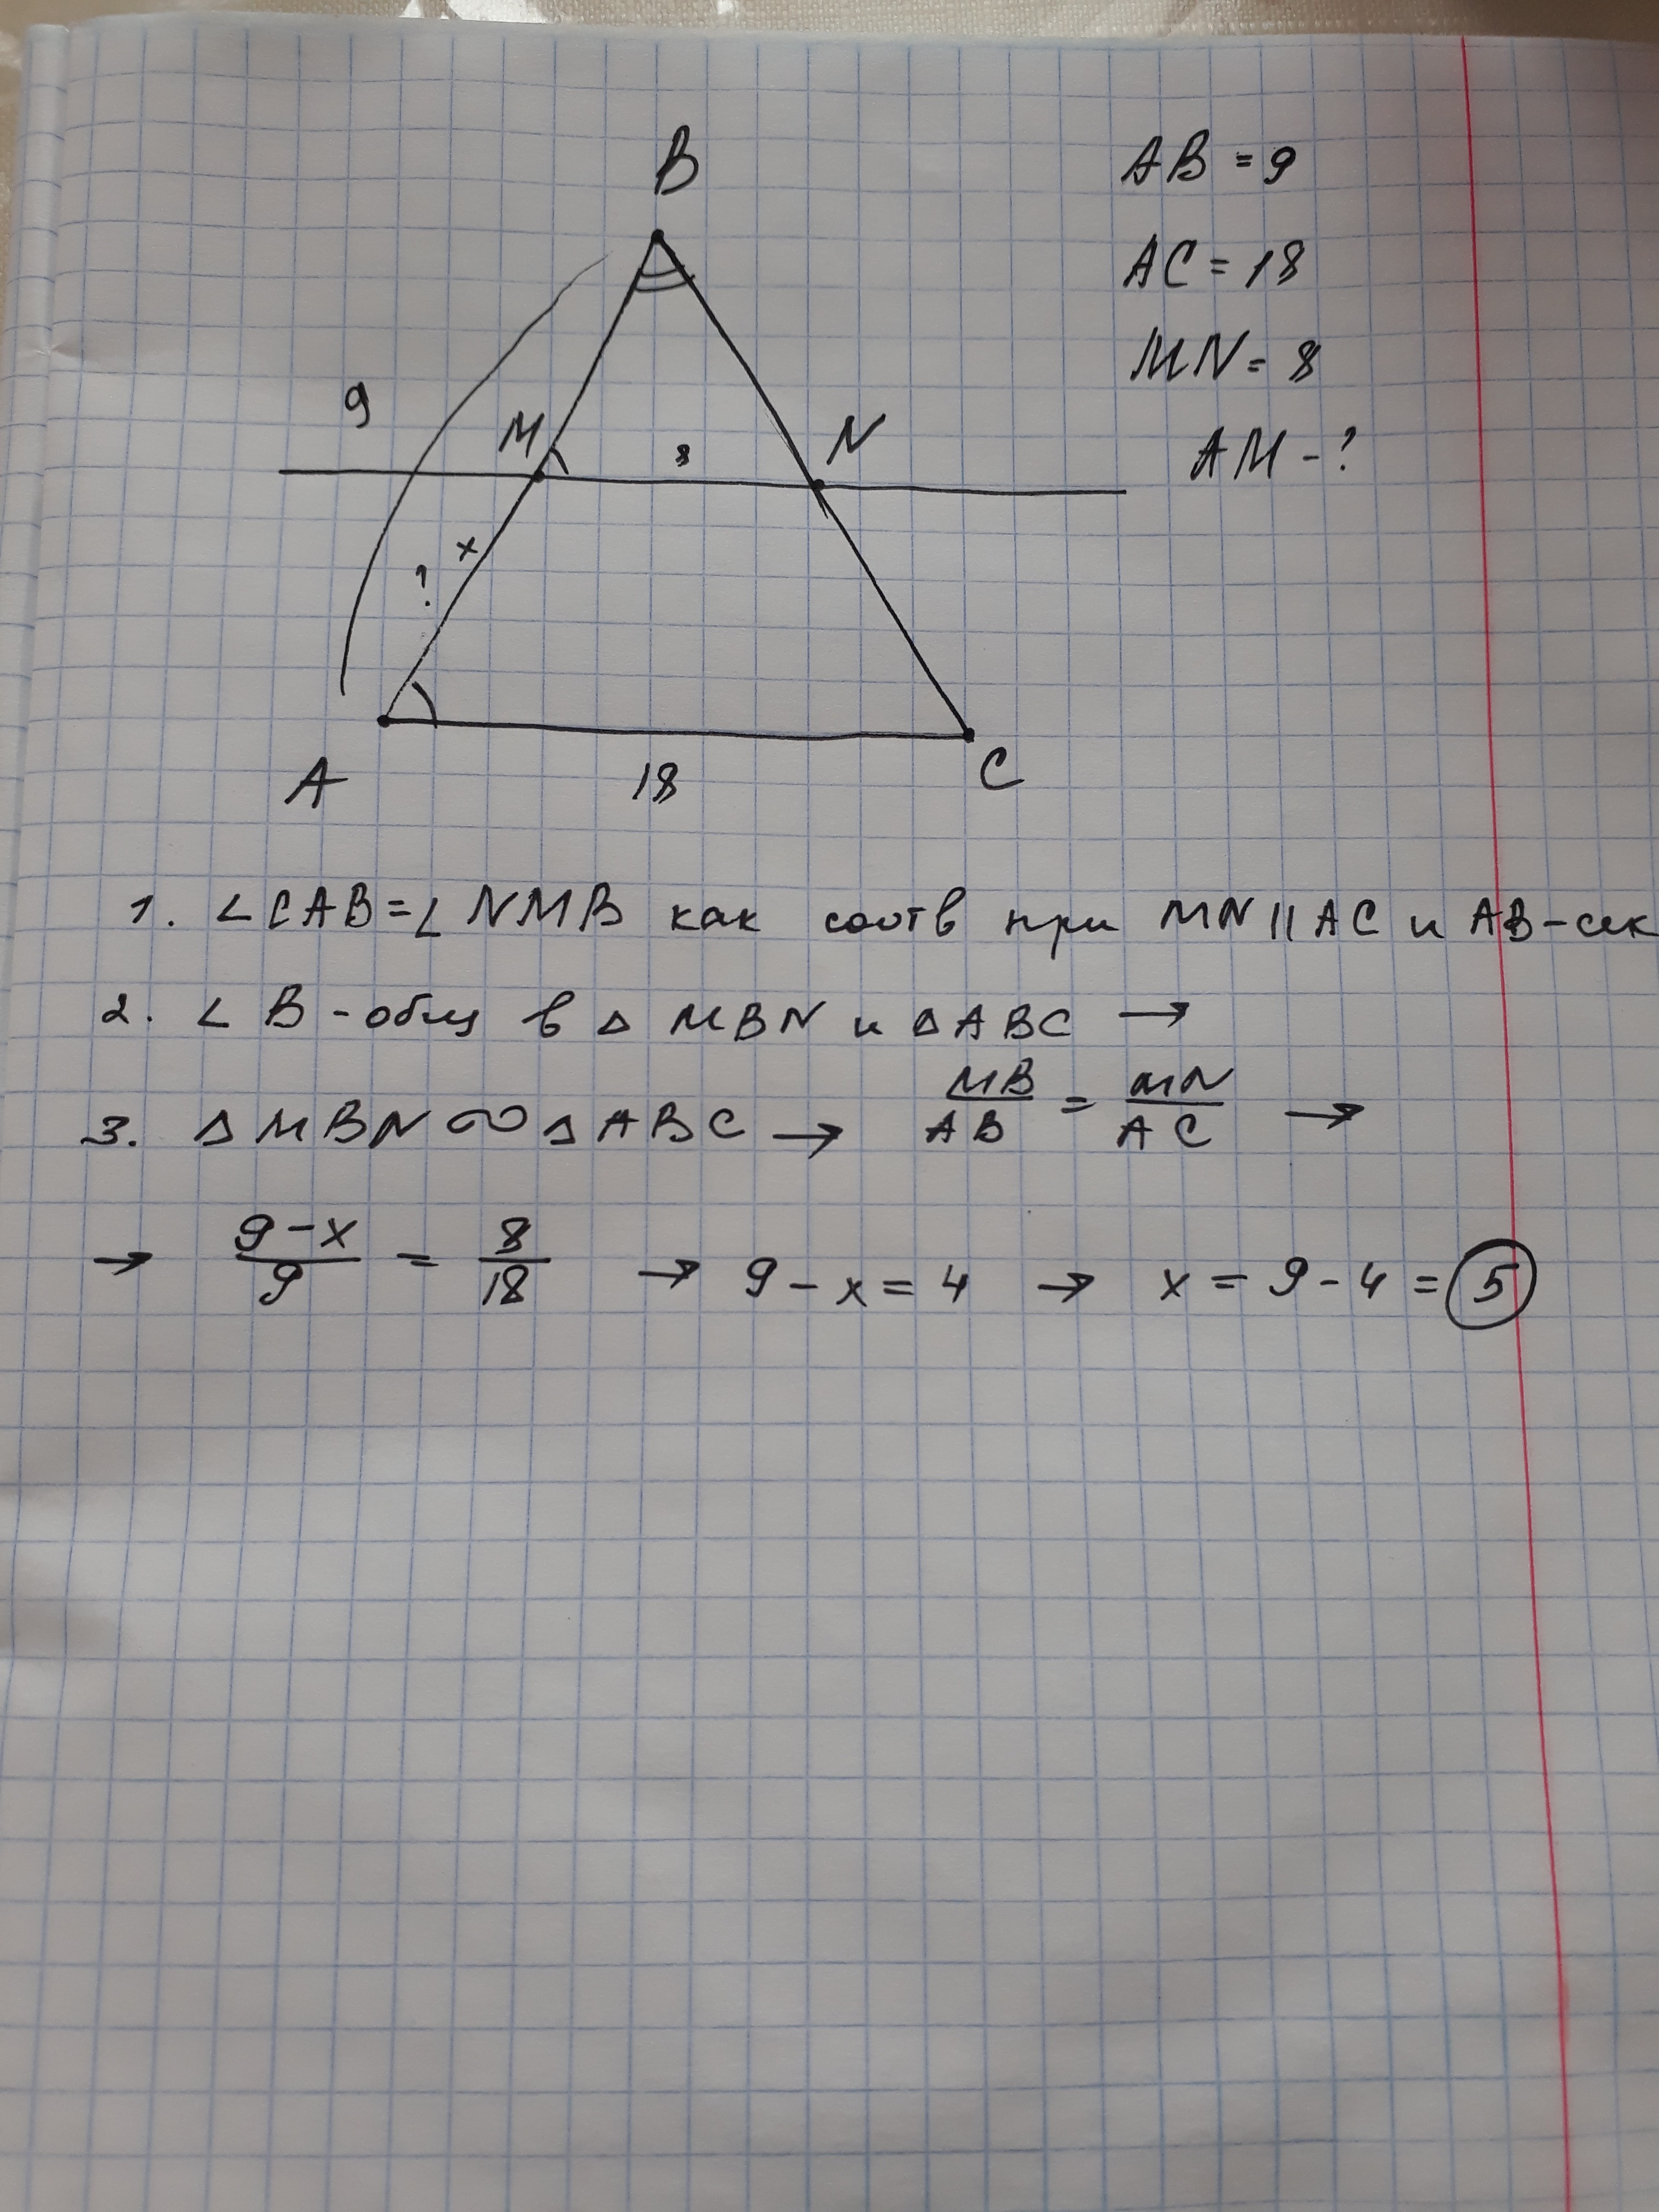 B
AB = 9
AC = 18
MN = 8
AM - ?
9
M
8
N
x
?
A
18
C
1. ∠CAB = ∠NMB как соотв при MN || AC и AB - сек
2. ∠B - общ в △ MBN и △ABC →
3. △MBN ∾ △ABC → MB/AB = MN/AC →
→ 9-x/9 = 8/18 → 9 - x = 4 → x = 9 - 4 = 5